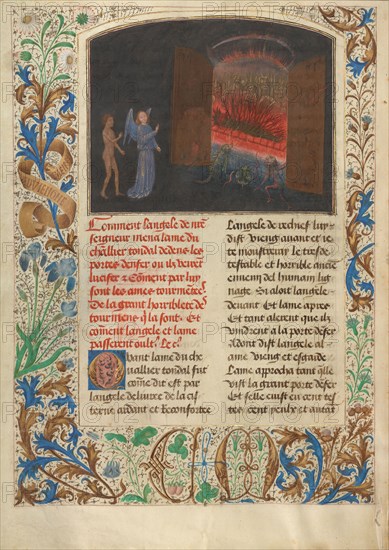 Comment langele de nre
seigneur mena lame du
chlallier tondal dedens les
portes denfer ou ilz veirent
lucifer & Coment par luy
sont les ames tourmetees
De la grant horriblete des
tourmens q la sont & Et
coment langele et lame
passerent oult
Quant lame du che
uallier tondal fut
come dit est par
langele deliure de la cis
terne ardant et Reconfortee
Langele de rechief luy
dist Vieng auant et ie
te monstreray le tresde
testable et horrible ancie
ennemi del humain lig
nage Si aloit langele
deuant Et lame apres
Et tant alerent que ilz
vindrent a la porte desfer
dont distl langele al
ame Vieng et esgarde
Lame approcha tant qlle
vist la grant porte desfer
Et selle euist eu cent tes
tes cent
CM